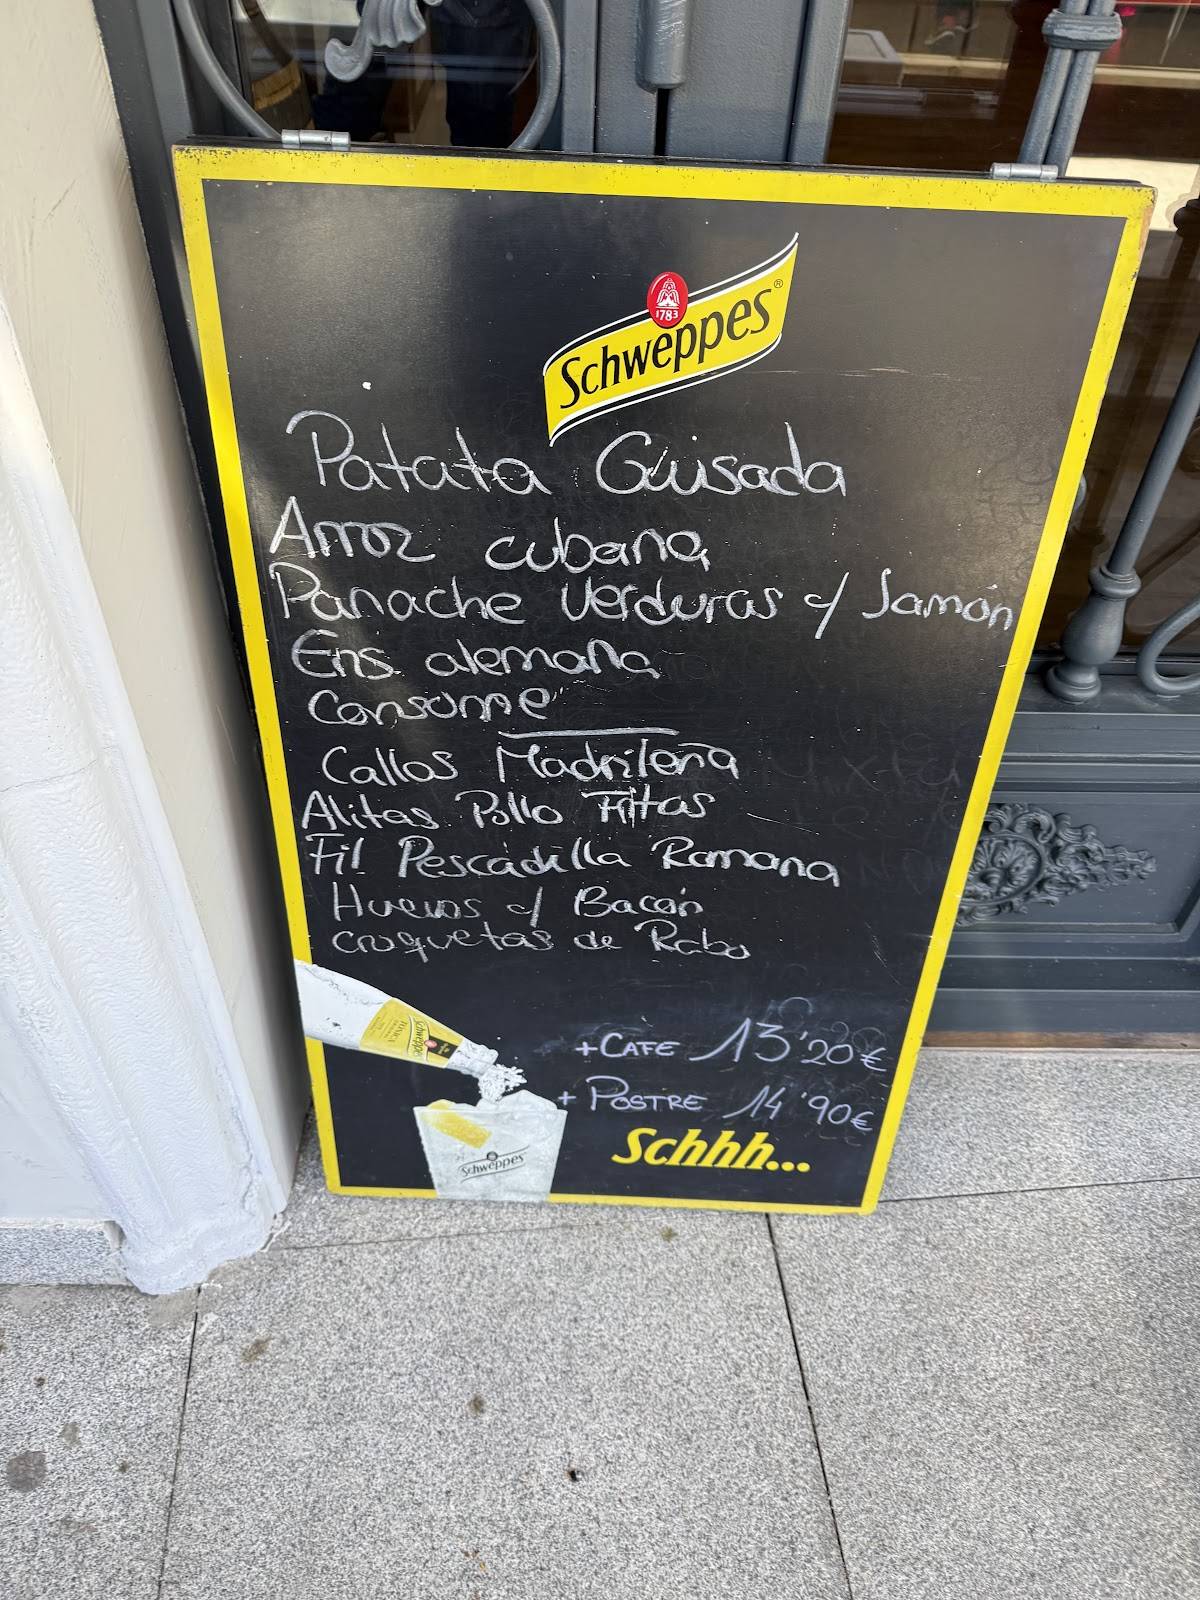 1783
Schweppes®
Patata Guisada
Arroz cubana
Panache Verduras c/ Jamón
Ens. alemana
Consome
Callos Madrileña
Alitas Pollo Fritas
Fil Pescadilla Romana
Huevos c/ Bacón
croquetas de Rabo
+CAFE 13'20€
+ POSTRE 14'90€
Schhh...
Schweppes
TONICA
Schweppes